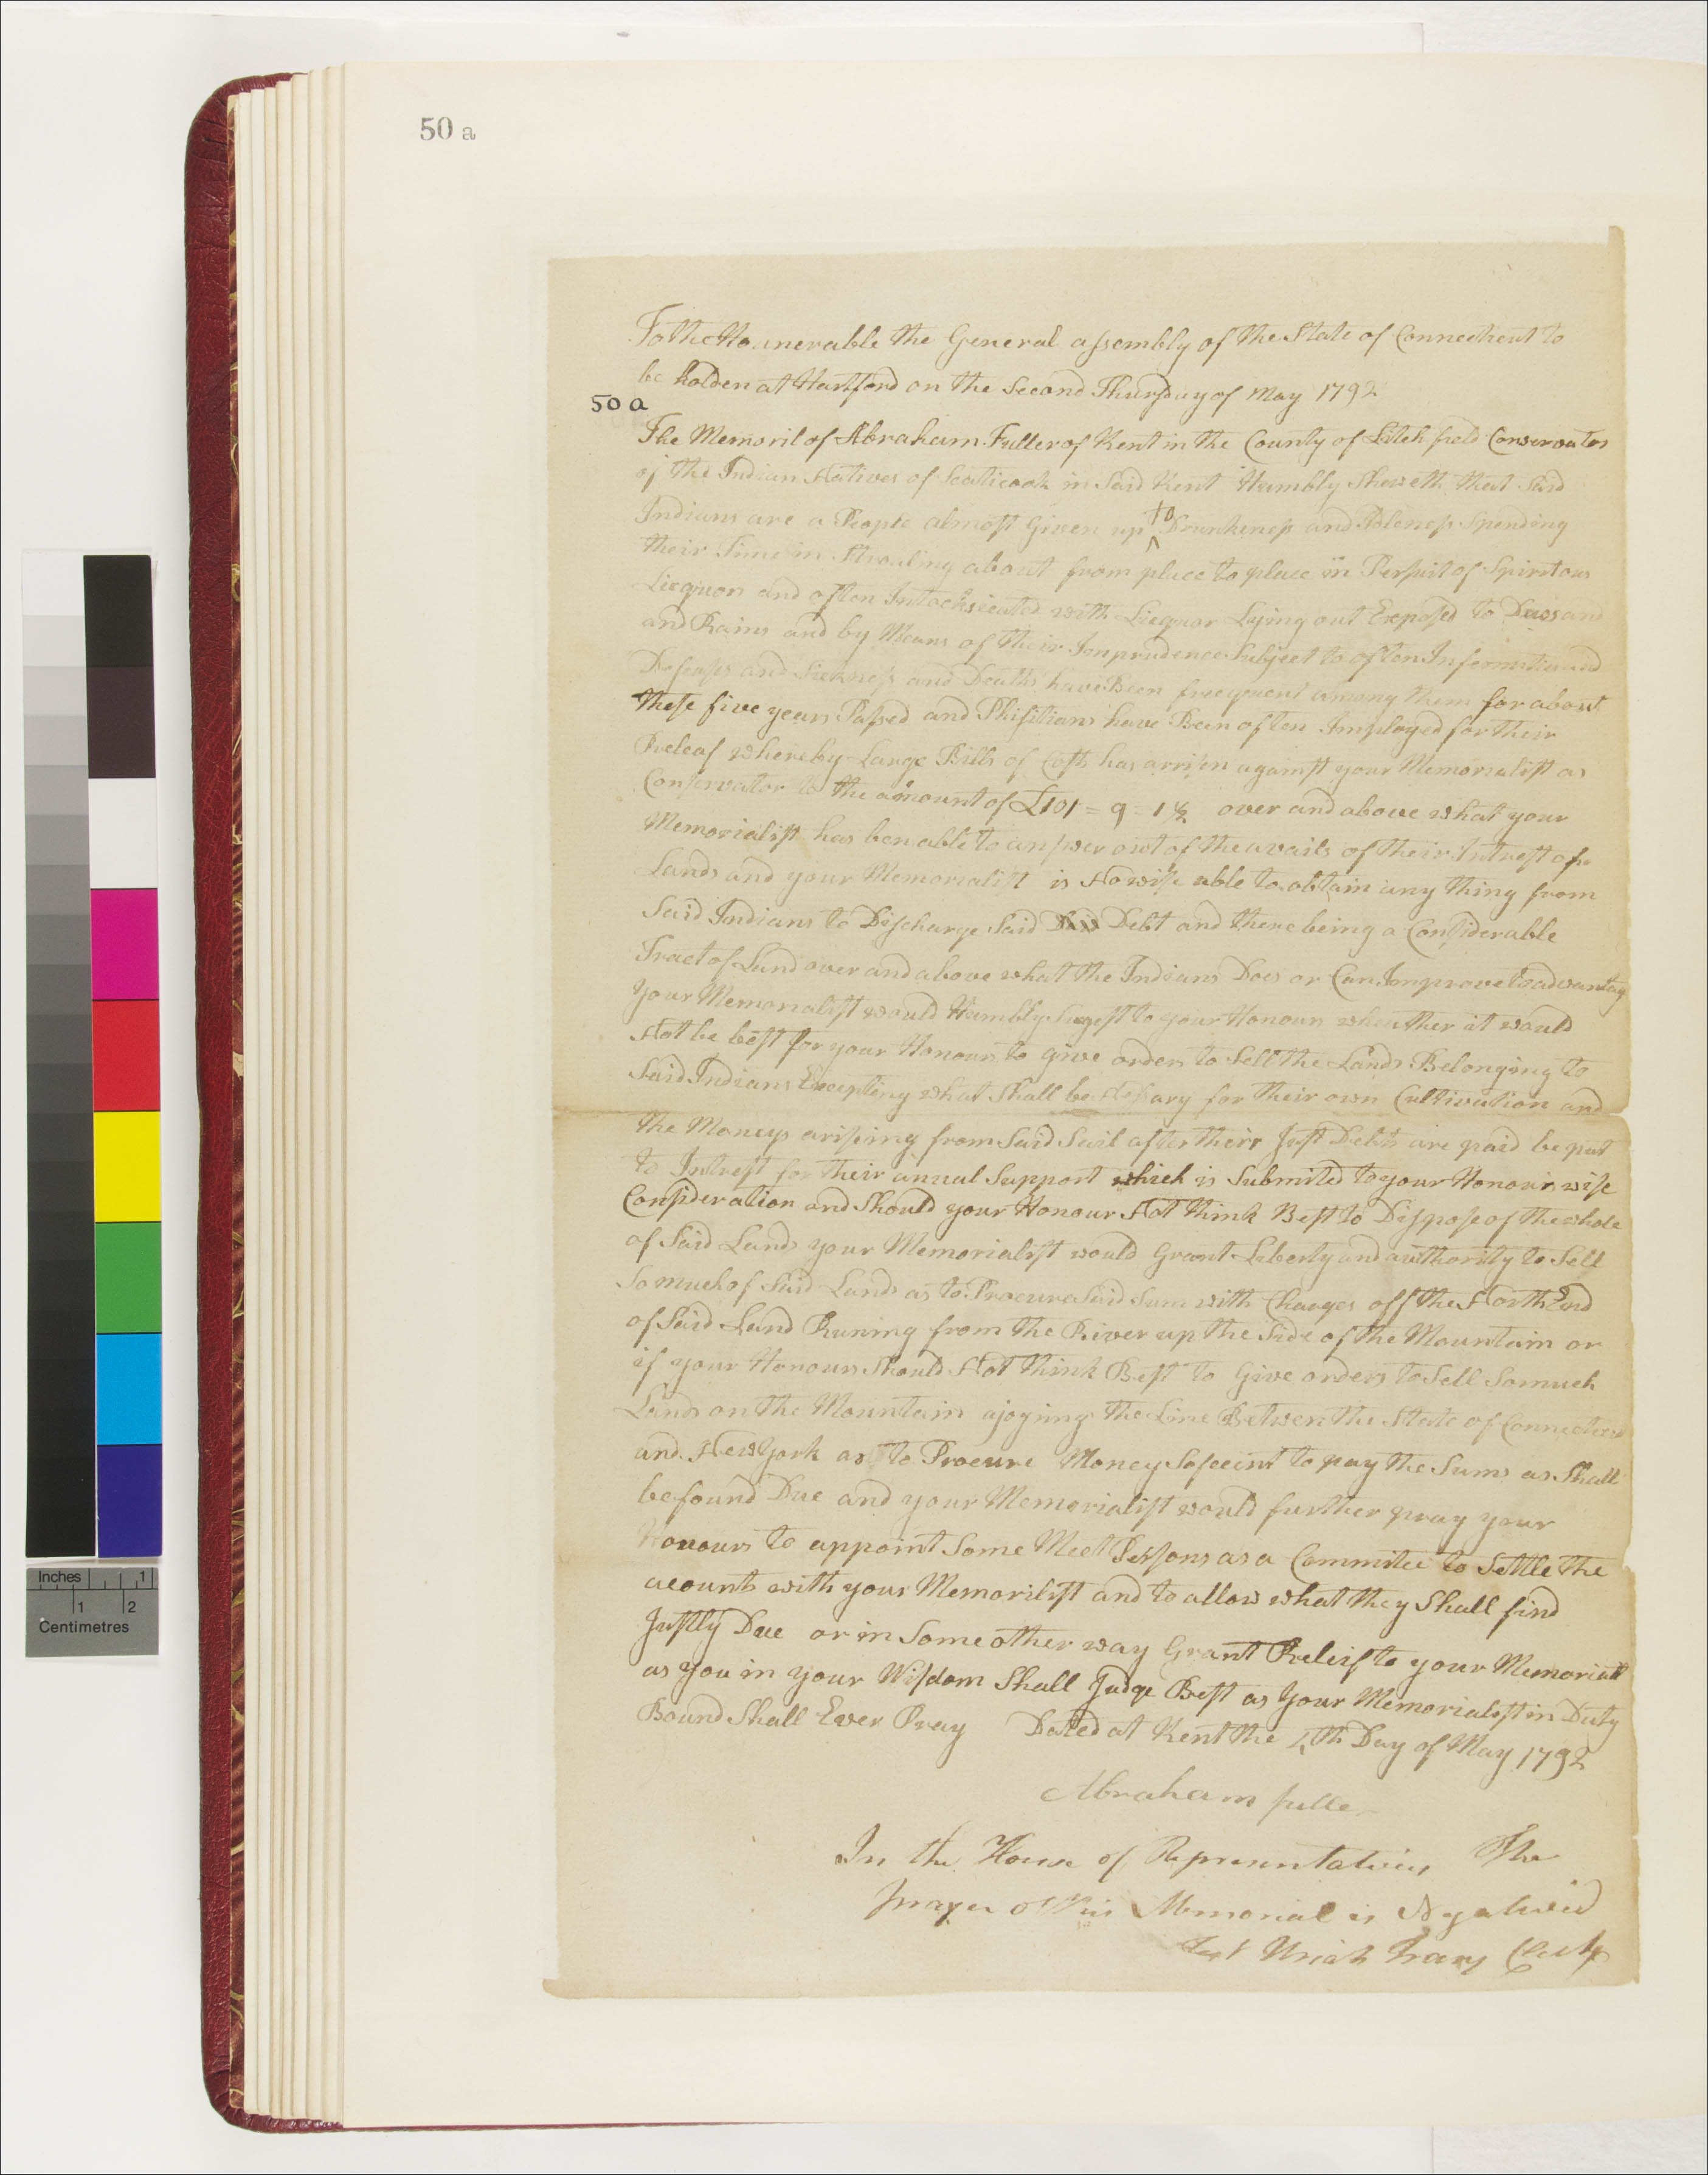 50 a
To the Hounerable the General assembly of the State of Connecticut to
be holden at Hartford on the Second Thursday of May 1792
50 a
The Memoril of Abraham Fuller of Kent in the County of Litchfield Conservator
of the Indian Natives of Scaticook in Said Kent Humbly Sheweth that Said
Indians are a People almost Given up to Drunkeness and Idleness Spending
their Time in Stroaling about from place to place in Persuit of Spiritous
Liequors and often Intocksicated with Liequor Lying out Exposed to Dews and
and Rains and by Means of their Imprudence Subject to often Infirmities and
Deseases and Sickness and Deaths have Been freequent among them for about
these five years Passed and Phisitians have Been often Imployed for their
Releaf whereby Large Bills of Costs has arrisen against your Memorialist as
Conservator to the amount of £101=9-1½ over and above what your
Memorialist has ben able to answer out of the avails of their Intrest of
Lands and your Memorialist is Nowise able to obtain any thing from
Said Indians to Discharge Said Debt and there being a Considerable
Tract of Land over and above what the Indians Does or Can Improve to advantag
your Memorialist would Humbly Sugest to your Honours whether it would
Not be best for your Honours to give orders to Sell the Lands Belonging to
Said Indians Excepting what Shall be Nessary for their own Cultivation and
the Moneys arising from Said Sail after their Just Debts are paid be put
to Intrest for their annual Support which is Submited to your Honours wise
Consideration and Should your Honour Not think Best to Dispose of the whole
of Said Lands your Memorialist would Grant Liberty and authority to Sell
So much of Said Lands as to Procure Said Sum with Charges off the North End
of Said Land Runing from the River up the Side of the Mountain or
if your Honours Should Not think Best to Give orders to Sell So much
Lands on the Mountain ajoying the Line Betwen the State of Connecticut
and New York as to Procure Money Sofecint to pay the Sums as Shall
be found Due and your Memorialist would further pray your
Honours to appoint Some Meet Persons as a Commitee to Settle the
acounts with your Memorilist and to allow what they Shall find
Justly Due or in Some other way Grant Releif to your Memorialist
as you in your Wisdom Shall Judge Best as your Memorialist in Duty
Bound Shall Ever Pray Dated at Kent the th Day of May 1792
Abraham fuller
In the House of Representatives The
prayer of this Memorial is Negatived
Test Uriah Tracy Clerk
Inches 1
1 2
Centimetres